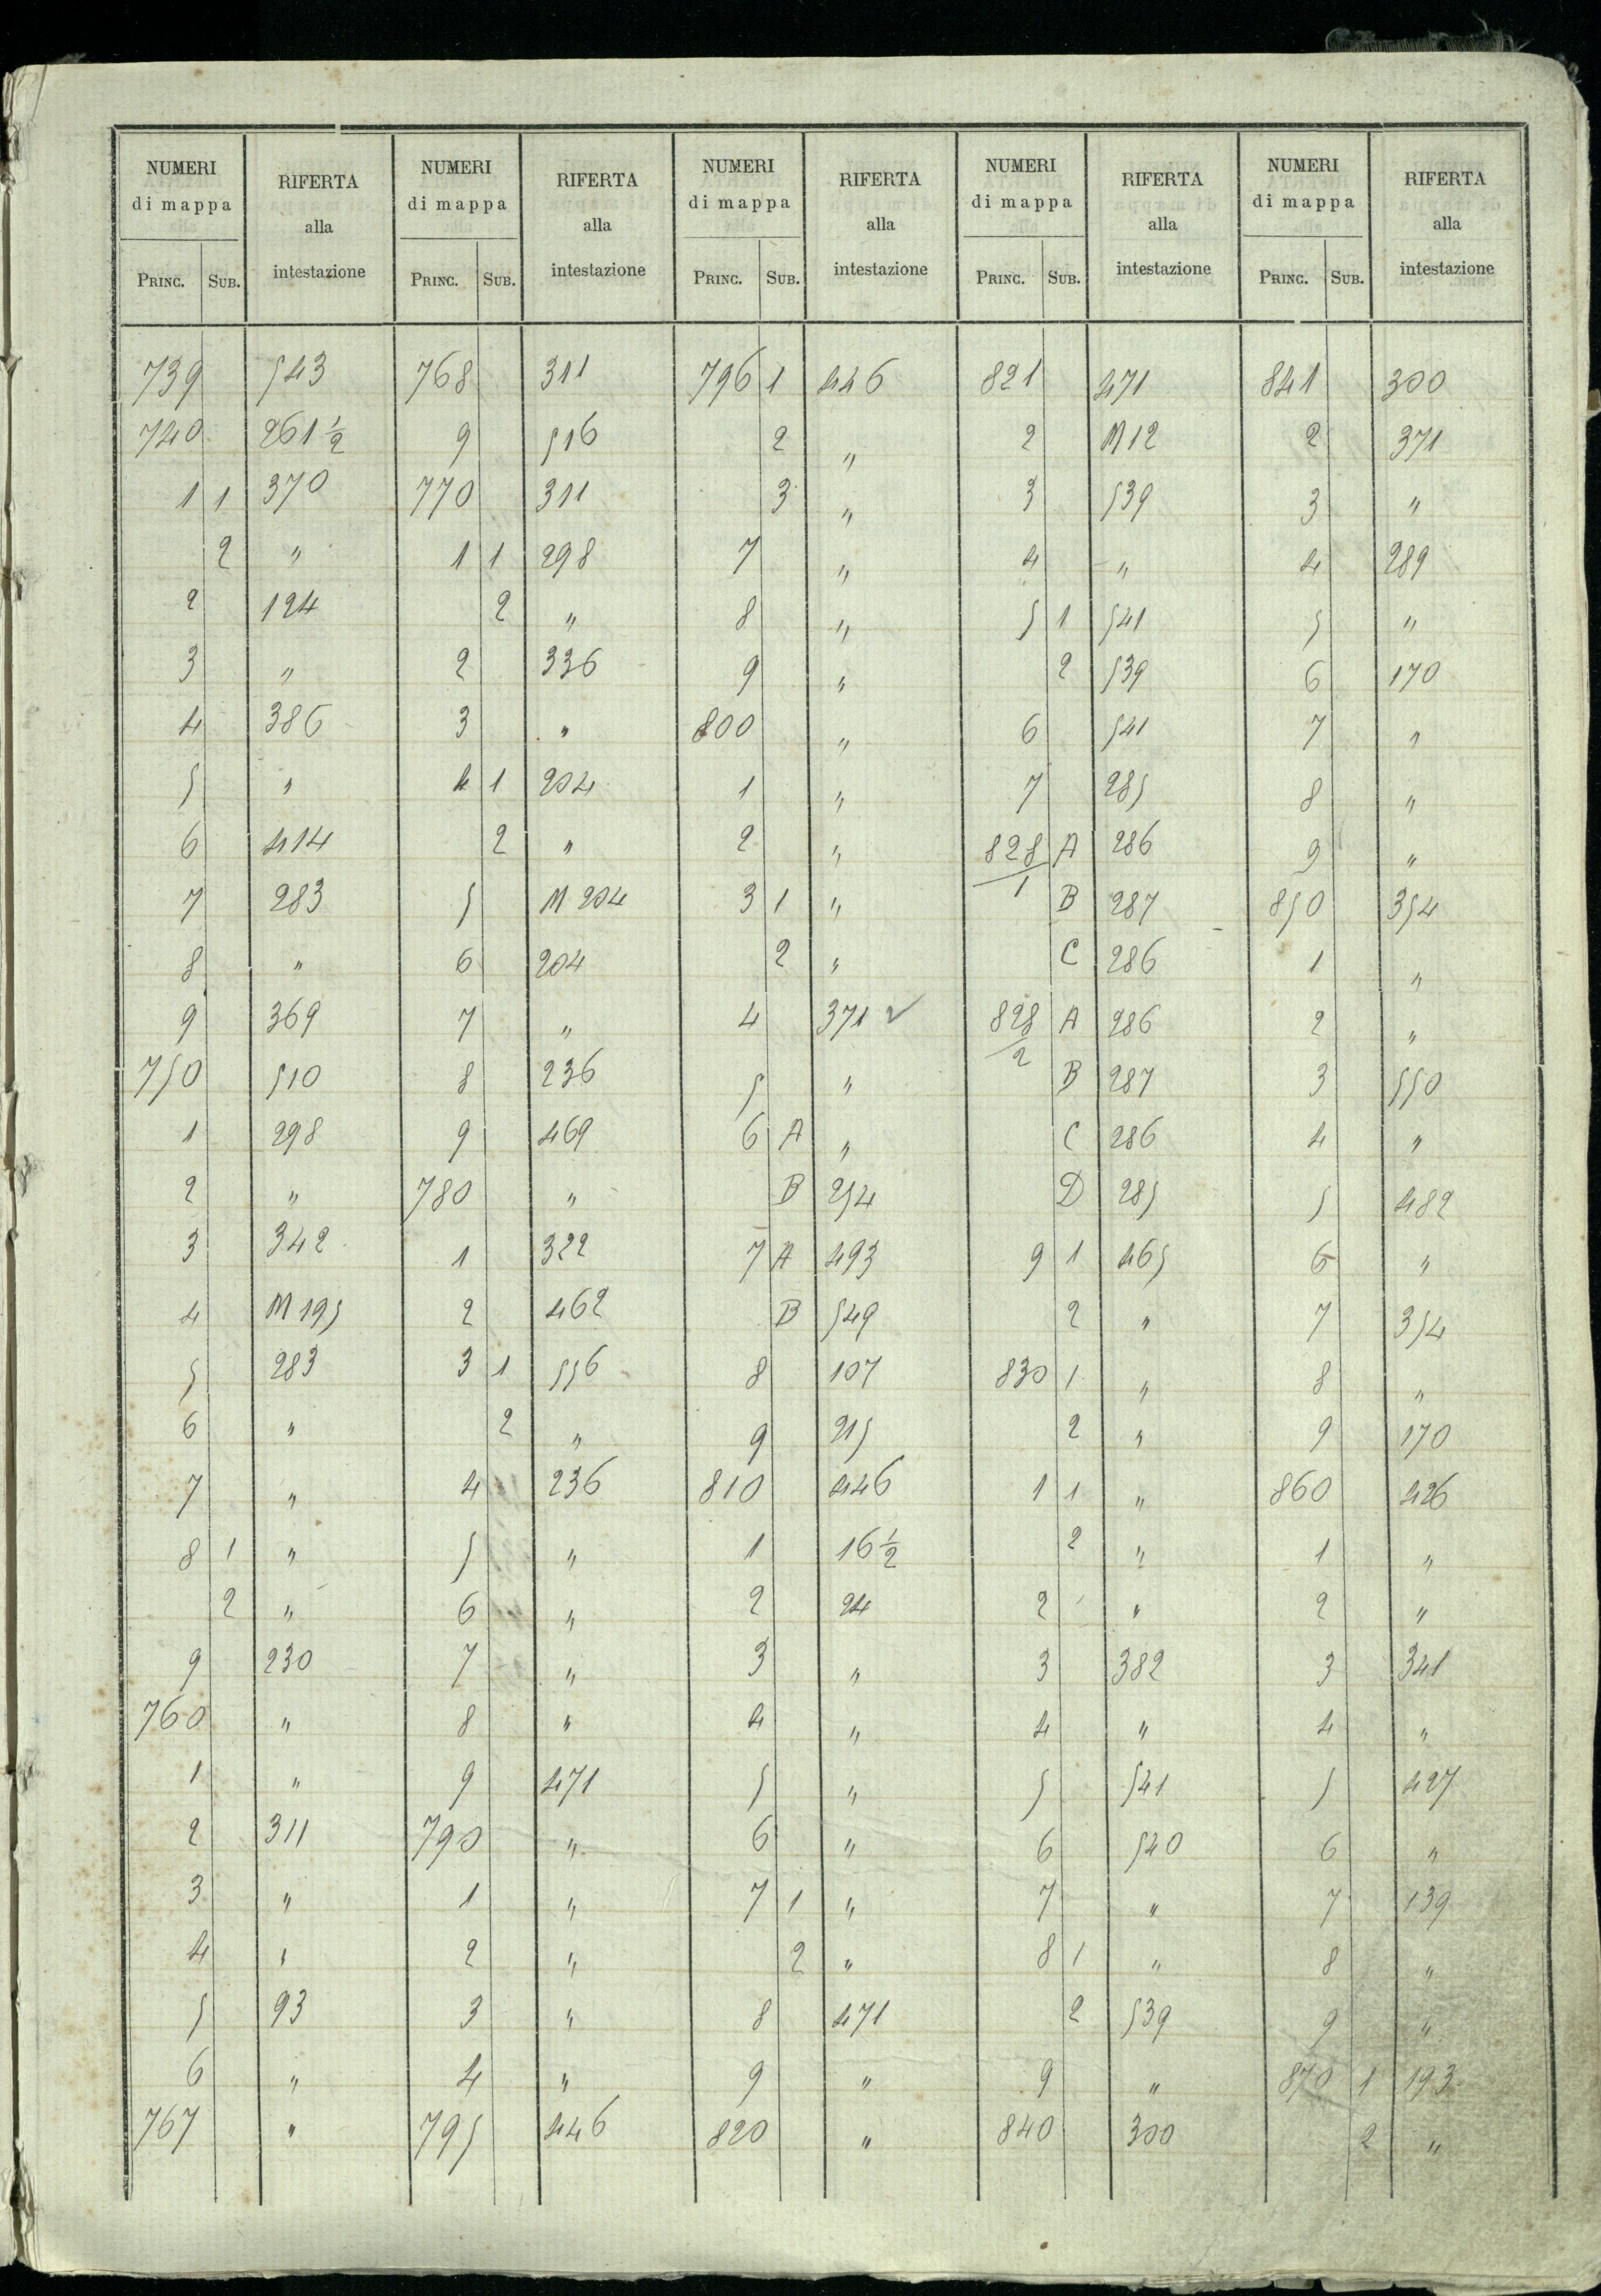 NUMERI di mappa RIFERTA alla intestazione NUMERI di mappa RIFERTA alla intestazione NUMERI di mappa RIFERTA alla intestazione NUMERI di mappa RIFERTA alla intestazione NUMERI di mappa RIFERTA alla intestazione
PRINC. SUB. PRINC. SUB. PRINC. SUB. PRINC. SUB. PRINC. SUB.
739 543 768 311 796 1 446 821 471 841 300
740 261 1/2 9 516 2 " 2 M 12 2 371
1 1 370 770 311 3 " 3 539 3 "
2 " 1 1 298 7 " 4 " 4 289
2 124 2 " 8 " 5 1 541 5 "
3 " 2 336 9 " 2 539 6 170
4 386 3 " 800 " 6 541 7 "
5 " 4 1 204 1 " 7 285 8 "
6 414 2 " 2 " 828/1 A 286 9 "
7 283 5 M 204 3 1 " B 287 850 354
8 " 6 204 2 " C 286 1 "
9 369 7 " 4 371 ✓ 828/2 A 286 2 "
750 510 8 236 5 " B 287 3 550
1 298 9 469 6 A " C 286 4 "
2 " 780 " B 254 D 285 5 482
3 342 1 322 7 A 493 9 1 465 6 "
4 M 195 2 462 B 549 2 " 7 354
5 283 3 1 556 8 107 830 1 " 8 "
6 " 2 " 9 215 2 " 9 170
7 " 4 236 810 446 1 1 " 860 426
8 1 " 5 " 1 16 1/2 2 " 1 "
2 " 6 " 2 24 2 " 2 "
9 230 7 " 3 " 3 382 3 341
760 " 8 " 4 " 4 " 4 "
1 " 9 471 5 " 5 541 5 427
2 311 790 " 6 " 6 540 6 "
3 " 1 " 7 1 " 7 " 7 139
4 " 2 " 2 " 8 1 " 8 "
5 93 3 " 8 471 2 539 9 "
6 " 4 " 9 " 9 " 870 1 193
767 " 795 446 820 " 840 300 2 "